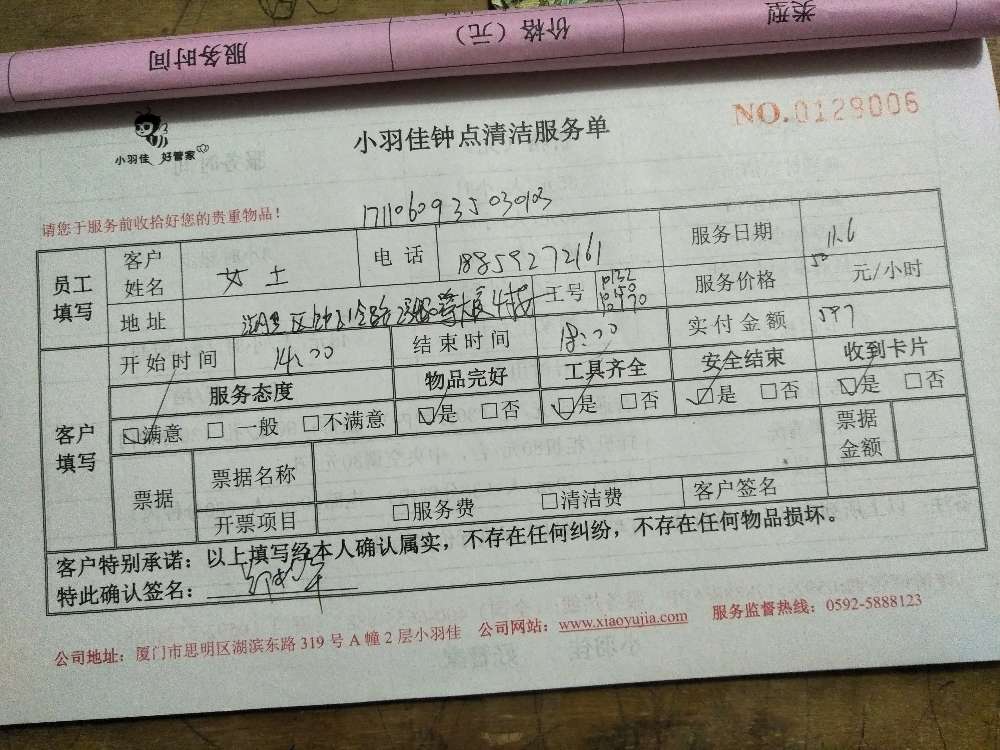 服务时间 价格（元） 类型
NO.0129006
小羽佳 好管家
小羽佳钟点清洁服务单
请您于服务前收拾好您的贵重物品！
员工填写
客户姓名 女士 电话 18859272161 服务日期 11.6
地址 工号 服务价格 50 元/小时
开始时间 14:00 结束时间 18:00 实付金额 597
客户填写
服务态度 物品完好 工具齐全 安全结束 收到卡片
☑满意 □一般 □不满意 ☑是 □否 ☑是 □否 ☑是 □否 ☑是 □否
票据 票据名称 票据金额
开票项目 □服务费 □清洁费 客户签名
客户特别承诺：以上填写经本人确认属实，不存在任何纠纷，不存在任何物品损坏。
特此确认签名：
公司地址：厦门市思明区湖滨东路 319 号 A 幢 2 层小羽佳 公司网站：www.xiaoyujia.com 服务监督热线：0592-5888123